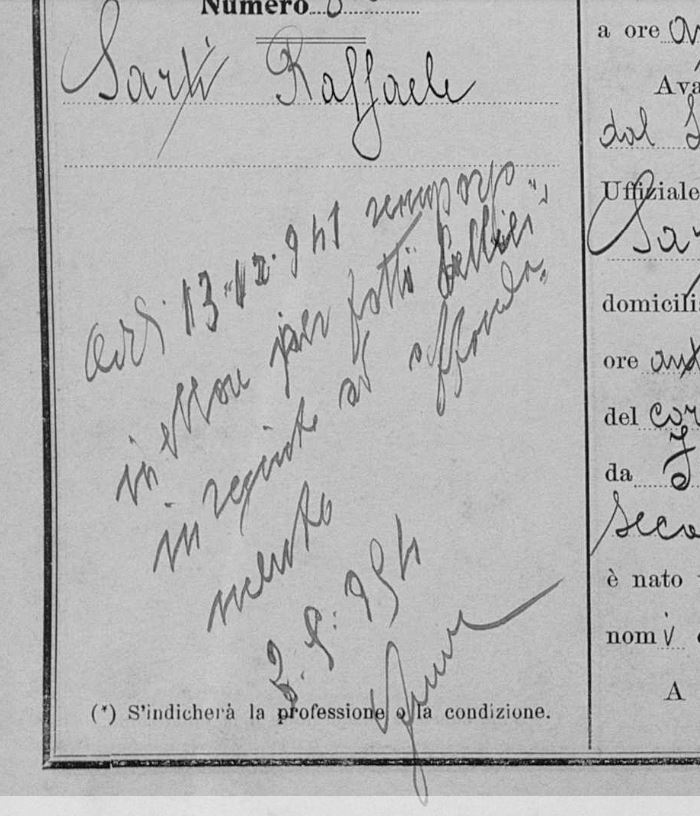 Numero
Sarti Raffaele
addì 13-12-941 scomparso
in mare per fatti bellici
in seguito ad affonda-
mento
2.9.954
(*) S'indicherà la professione o la condizione.
a ore
dal
Uffiziale
domicili
ore
del
da
seco
è nato
nomi
A